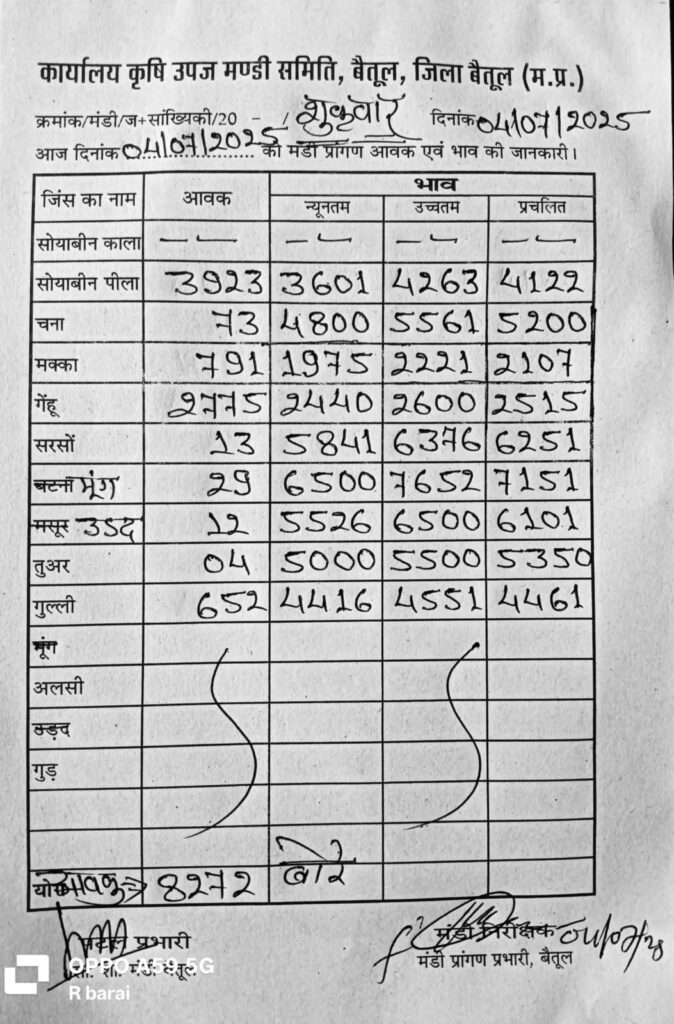 कार्यालय कृषि उपज मण्डी समिति, बैतूल, जिला बैतूल (म.प्र.)
क्रमांक/मंडी/ज+सांख्यिकी/20 - / शुक्रवार दिनांक 04/07/2025
आज दिनांक 04/07/2025 को मंडी प्रांगण आवक एवं भाव की जानकारी।
जिंस का नाम आवक भाव
न्यूनतम उच्चतम प्रचलित
सोयाबीन काला — — — — — — — —
सोयाबीन पीला 3923 3601 4263 4122
चना 73 4800 5561 5200
मक्का 791 1975 2221 2107
गेंहू 2775 2440 2600 2515
सरसों 13 5841 6376 6251
बटना मूंग 29 6500 7652 7151
मसूर उडद 12 5526 6500 6101
तुअर 04 5000 5500 5350
गुल्ली 652 4416 4551 4461
मूंग
अलसी
उड़द
गुड़
योग आवक 8272 बोरे
प्रभारी मंडी निरीक्षक 04/07/25
शा. मंडी बैतूल मंडी प्रांगण प्रभारी, बैतूल
OPPO A59 5G
R barai